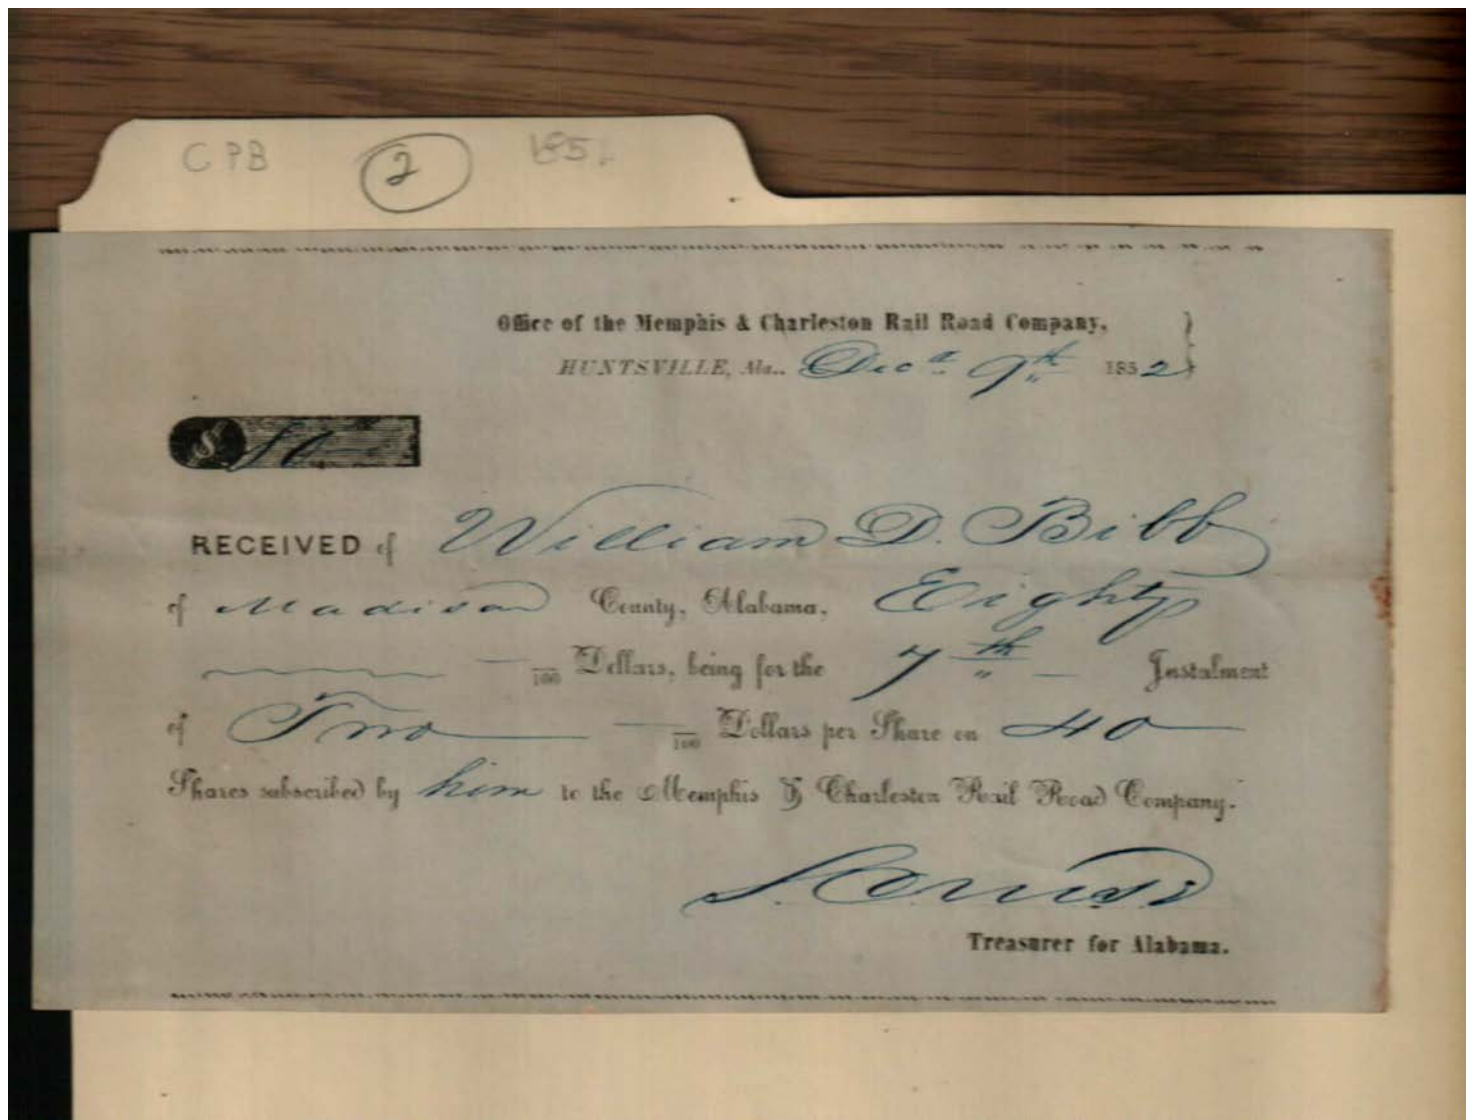 CPB 2
Office of the Memphis & Charleston Rail Road Company,
HUNTSVILLE, Ala., Decr 9th 1852
$ 80
RECEIVED of William D. Bibb
of Madison County, Alabama, Eighty
/100 Dollars, being for the 7th Instalment
of Two /100 Dollars per Share on 40
Shares subscribed by him to the Memphis & Charleston Rail Road Company.
Treasurer for Alabama.